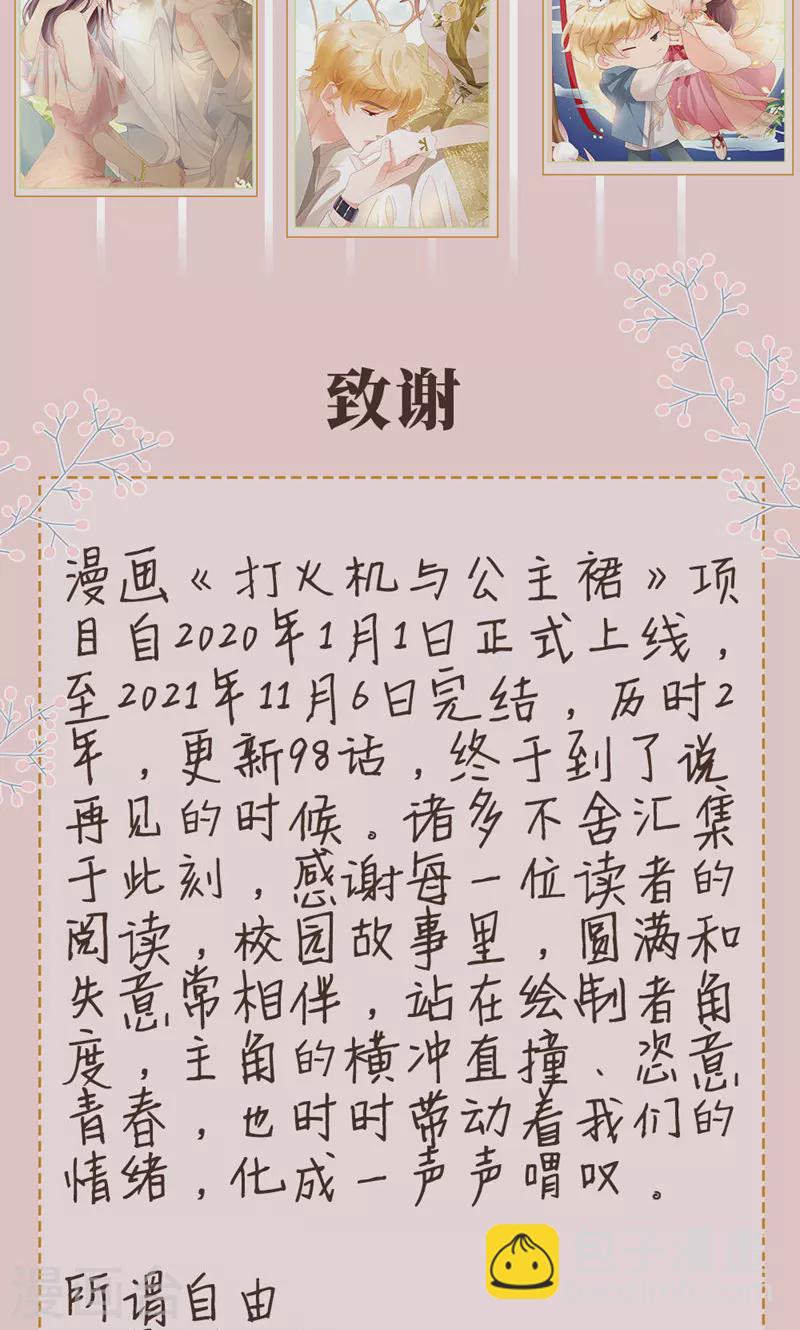 致谢
漫画《打火机与公主裙》项
目自2020年1月1日正式上线，
至2021年11月6日完结，历时2
年，更新98话，终于到了说
再见的时候。诸多不舍汇集
于此刻，感谢每一位读者的
阅读，校园故事里，圆满和
失意常相伴，站在绘制者角
度，主角的横冲直撞、恣意
青春，也时时带动着我们的
情绪，化成一声声喟叹。
所谓自由
包子漫画
漫画台